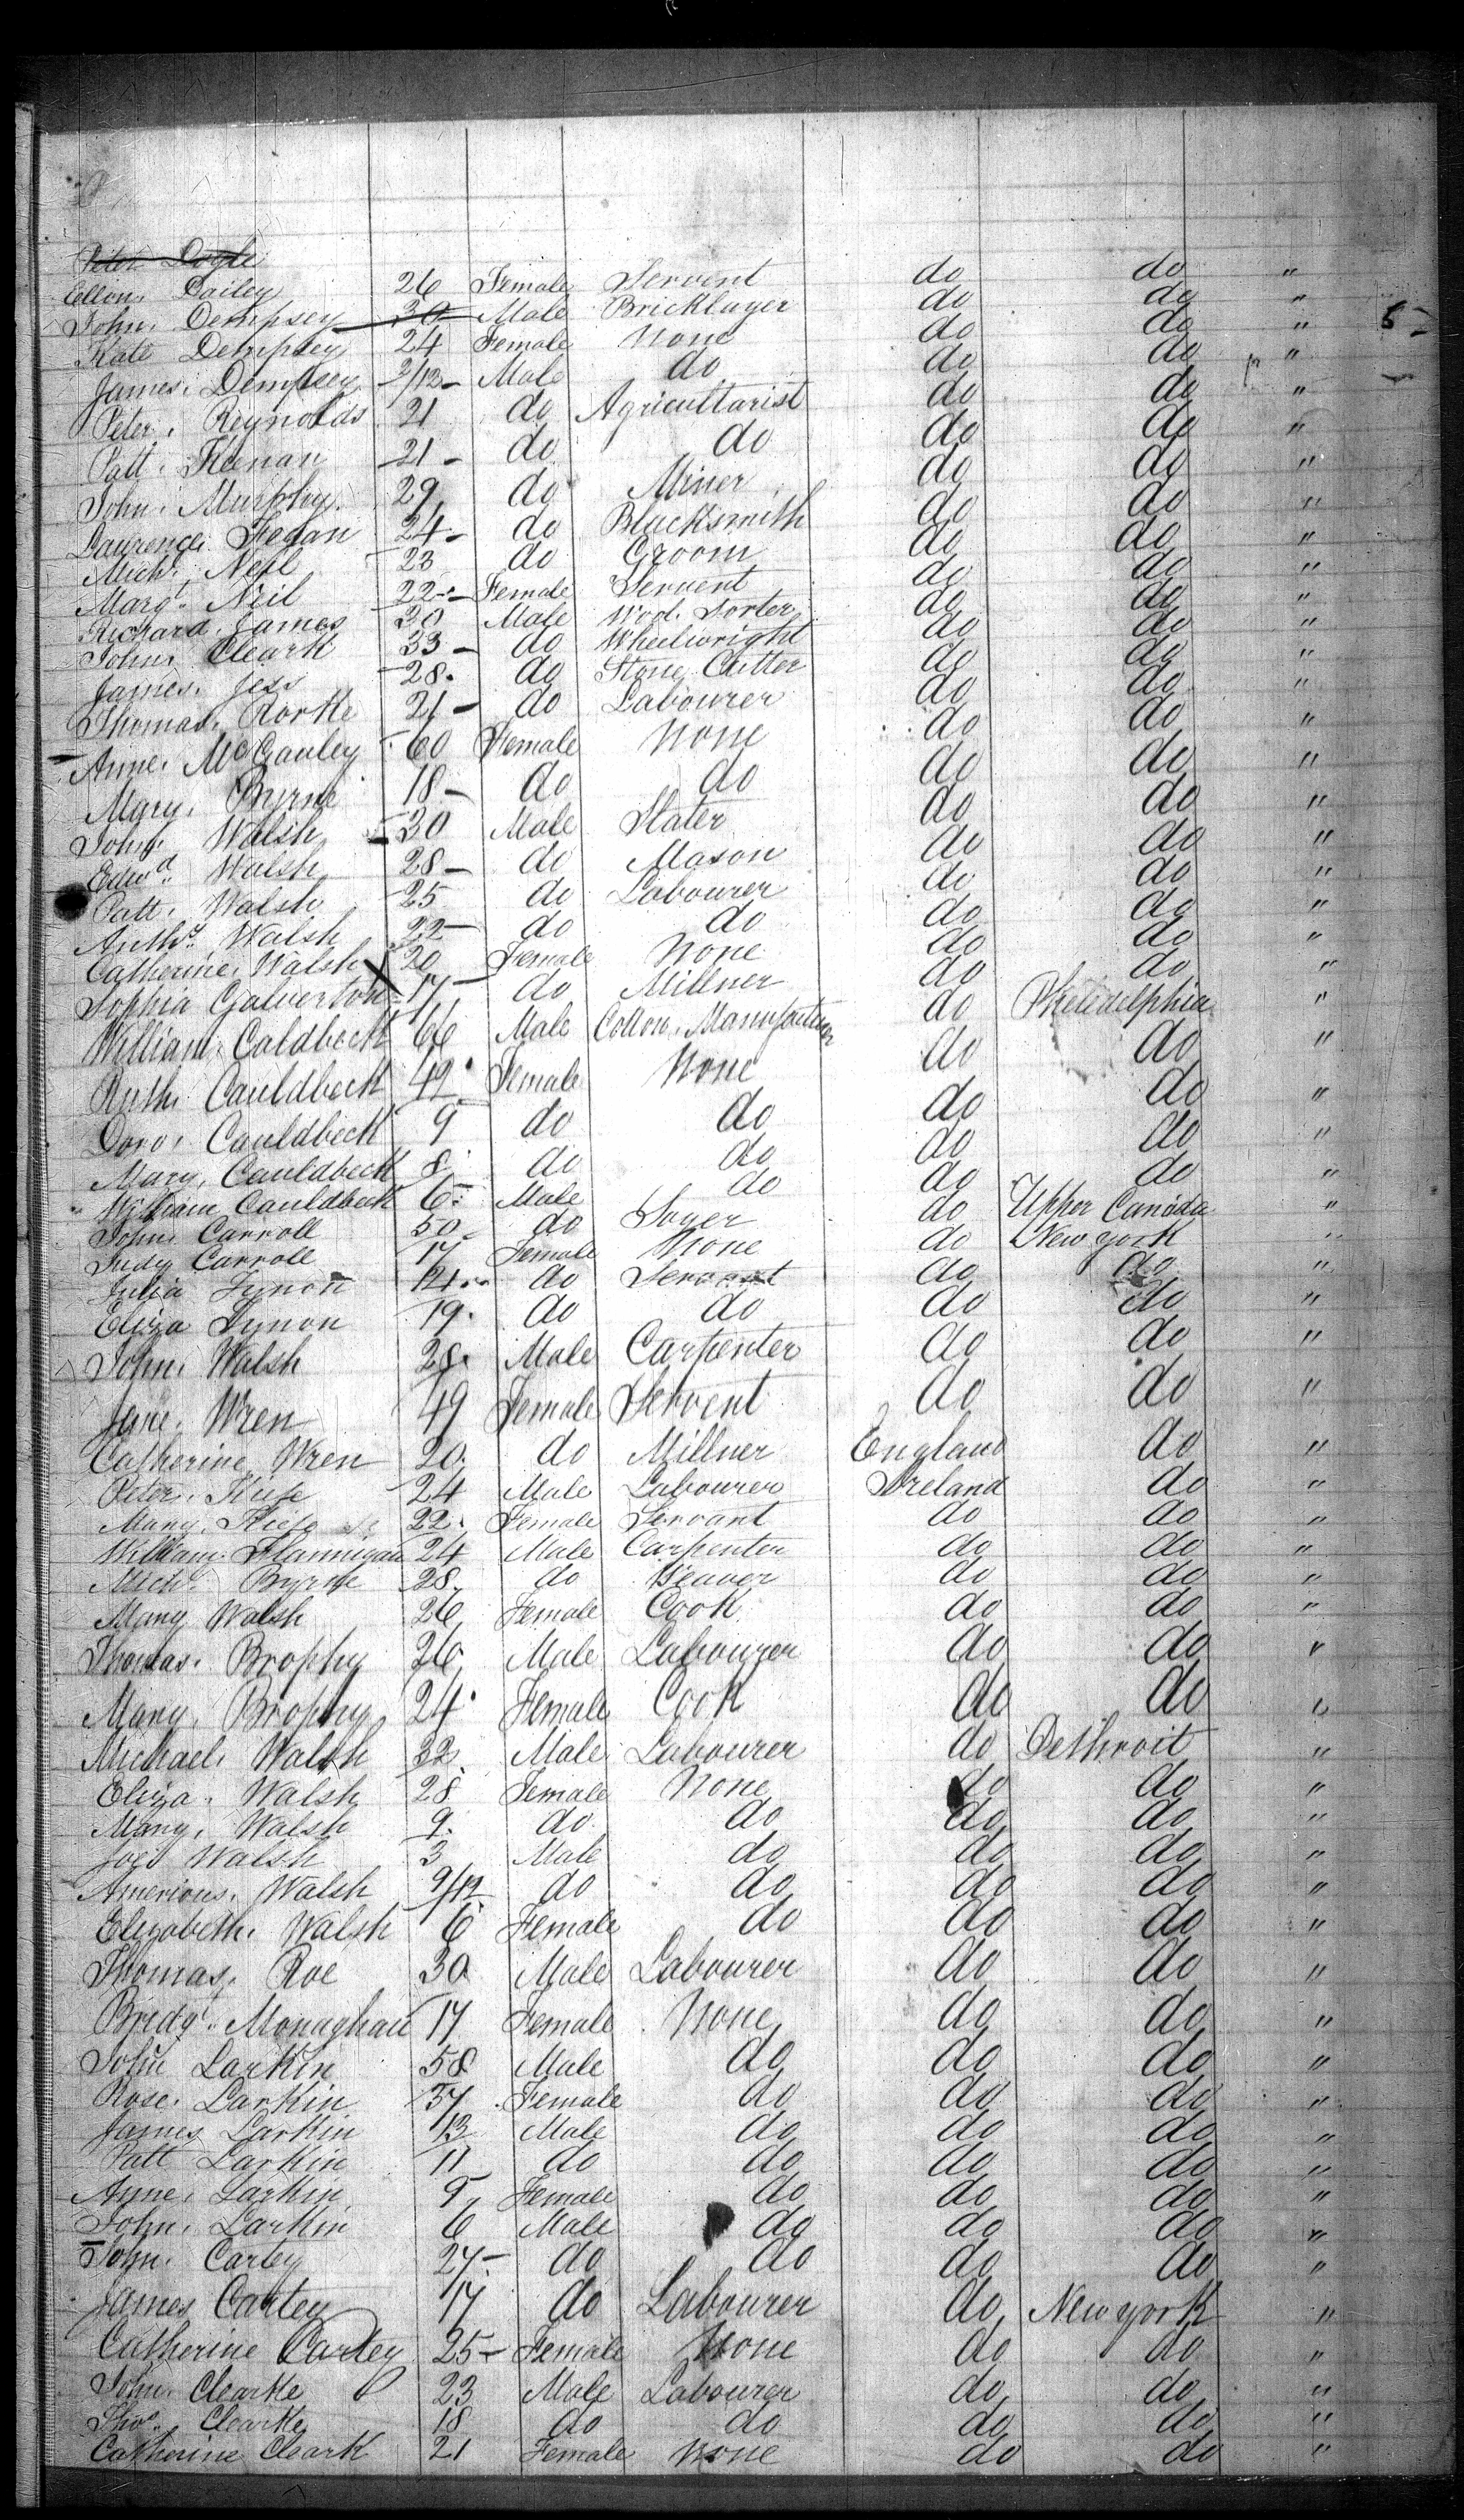 Peter Doyle
Ellen Dailey 26 Female Servent do do "
John Dempsey 30 Male Bricklayer do do "
Kate Dempsey 24 Female None do do " 5-
James Dempsey 2/12 Male do do do "
Peter Reynolds 21 do Agricultarist do do "
Patt Keenan 21 do do do do "
John Murphy 29 do Miner do do "
Laurence Fegan 24 do Blacksmith do do "
Mich. Neil 23 do Groom do do "
Margt. Neil 22 Female Servent do do "
Richard James 30 Male Wool Sorter do do "
John Cleark 33 do Wheelwright do do "
James Jess 28 do Stone Cutter do do "
Thomas Rorke 21 do Labourer do do "
Anne McGauley 60 Female None do do "
Mary Byrne 18 do do do do "
John Walsh 30 Male Slater do do "
Edwd. Walsh 28 do Mason do do "
Patt. Walsh 25 do Labourer do do "
Anthy. Walsh 22 do do do do "
Catherine Walsh 20 Female None do do "
Sophia Galverton 17 do Millner do do "
William Caldbeck 66 Male Cotton Manufacturer do Philidelphia "
Ruth Cauldbeck 42 Female None do do "
Doro. Cauldbeck 9 do do do do "
Mary Cauldbeck 8 do do do do "
William Cauldbeck 6 Male do do do "
John Carroll 50 do Soyer do Upper Canada "
Judy Carroll 17 Female None do New york "
Julia Tynon do Servant do do "
Eliza Tynon 19 do do do do "
John Walsh 28 Male Carpenter do do "
Jane Wren 49 Female Servent do do "
Catherine Wren 20 do Millner England do "
Peter Kiefe 24 Male Labourer Ireland do "
Mary Kiefe 22 Female Servant do do "
William Flannigan 24 Male Carpenter do do "
Mich. Byrne 28 do Weaver do do "
Mary Walsh 26 Female Cook do do "
Thomas Brophy 26 Male Labourer do do "
Mary Brophy 24 Female Cook do do "
Michael Walsh 32 Male Labourer do Dethroit "
Eliza Walsh 28 Female None do do "
Mary Walsh 9 do do do do "
Joes Walsh 3 Male do do do "
Americus Walsh 9/12 do do do do "
Elizabeth Walsh 6 Female do do do "
Thomas Roe 30 Male Labourer do do "
Bredgt. Monaghan 17 Female None do do "
John Larkin 58 Male do do do "
Rose Larkin 37 Female do do do "
James Larkin 13 Male do do do "
Patt Larkin 11 do do do do "
Anne Larkin 9 Female do do do "
John Larkin 6 Male do do do "
John Carley 27 do do do do "
James Carley 17 do Labourer do New york "
Catherine Carley 25 Female None do do "
John Clearke 23 Male Labourer do do "
Thos. Clearke 18 do do do do "
Catherine Cleark 21 Female None do do "